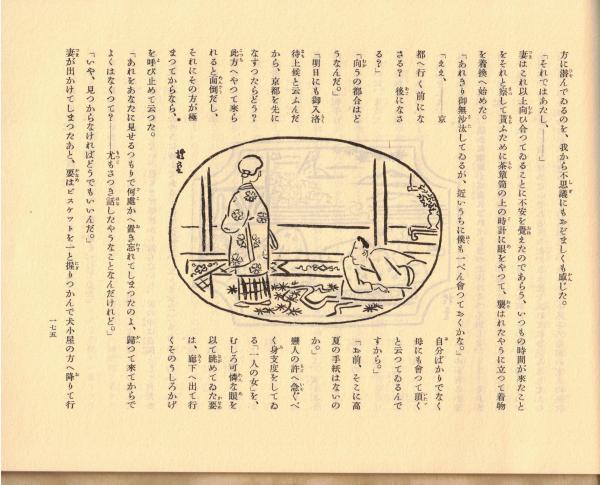 方に潜んでゐるのを、我から不思議にもおぞましくも感じた。
「それではあたし、――」
妻はこれ以上向ひ合つてゐることに不安を覺えたのであらう、いつもの時間が來たこと
をそれと察して貰ふために茶箪笥の上の時計に眼をやつて、襲はれたやうに立つて着物
を着換へ始めた。
「あれきり御無沙汰してゐるが、近いうちに僕も一ぺん會つておくかな。」
「ええ、――京
都へ行く前にな
さる? 後になさ
る?」
「向うの都合はど
うなんだ。」
「明日にも御入洛
待上候と云ふんだ
から、京都を先に
なすつたらどう?
此方へやつて來ら
れると面倒だし、
それにその方が極
まつてからなら、
自分ばかりでなく
母にも會つて頂く
と云つてゐるんで
すから。」
「お前、そこに高
夏の手紙はないの
か。」
戀人の許へ急ぐべ
く身支度をしてゐ
る「一人の女」を、
むしろ可憐な眼を
以て眺めてゐた要
は、廊下へ出て行
くそのうしろかげ
を呼び止めて云つた。
「あれをあなたに見せるつもりで何處かへ置き忘れてしまつたのよ、歸つて來てからで
よくはなくつて?――尤もさつき話したやうなことなんだけれど。」
「いや、見つからなければどうでもいいんだ。」
妻が出かけてしまつたあと、要はビスケットを一と握りつかんで犬小屋の方へ降りて行
一七五